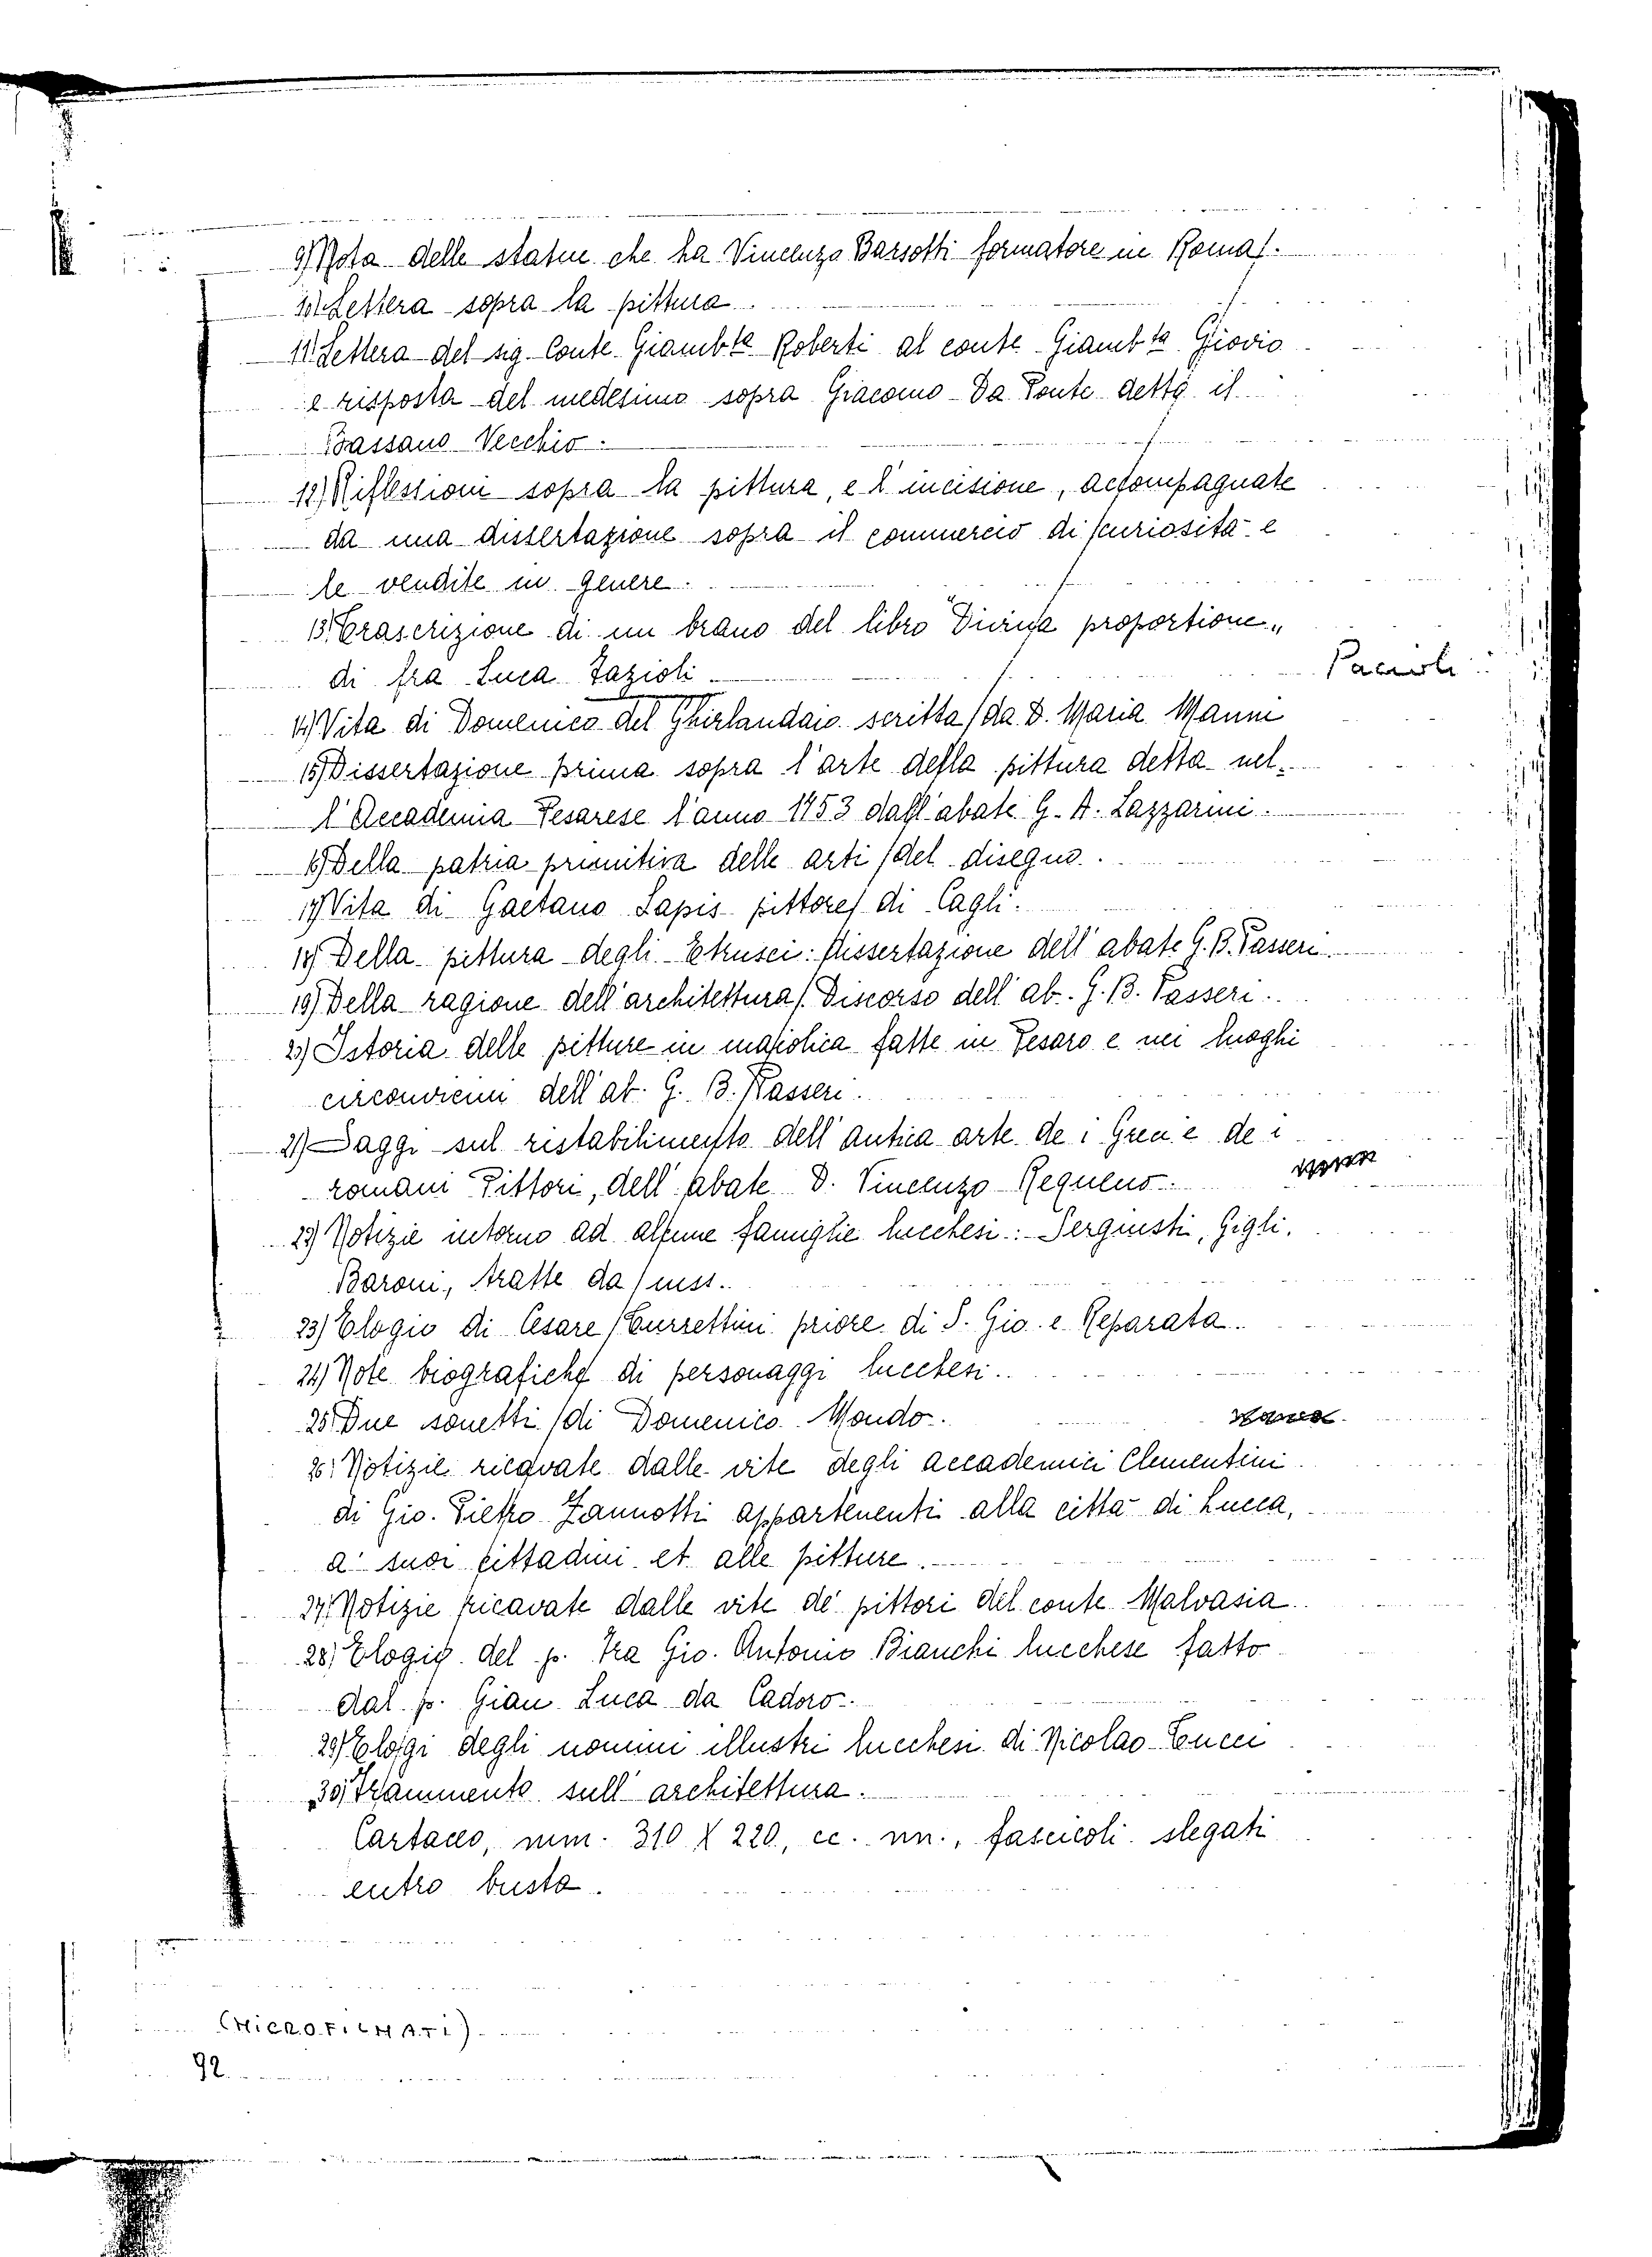 9) Nota delle statue che ha Vincenzo Barsotti formatore in Roma.
10) Lettera sopra la pittura.
11) Lettera del sig. Conte Giamb.ta Roberti al conte Giamb.ta Giovio
e risposta del medesimo sopra Giacomo Da Ponte detto il
Bassano Vecchio.
12) Riflessioni sopra la pittura, e l'incisione, accompagnate
da una dissertazione sopra il commercio di curiosità e
le vendite in genere.
13) Trascrizione di un brano del libro "Divina proportione"
di fra Luca Pazioli. Pacioli
14) Vita di Domenico del Ghirlandaio scritta da D. Maria Manni
15) Dissertazione prima sopra l'arte della pittura detta nel-
l'Accademia Pesarese l'anno 1753 dall'abate G. A. Lazzarini.
16) Della patria primitiva delle arti del disegno.
17) Vita di Gaetano Lapis pittore di Cagli.
18) Della pittura degli Etrusci: Dissertazione dell'abate G. B. Passeri.
19) Della ragione dell'architettura. Discorso dell'ab. G. B. Passeri.
20) Istoria delle pitture in majolica fatte in Pesaro e nei luoghi
circonvicini dell'ab. G. B. Passeri.
21) Saggi sul ristabilimento dell'antica arte de i Greci e de i
romani Pittori, dell'abate D. Vincenzo Requeno.
22) Notizie intorno ad alcune famiglie lucchesi: Serginsti, Gigli,
Baroni, tratte da mss.
23) Elogio di Cesare Turrettini priore di S. Gio. e Reparata.
24) Note biografiche di personaggi lucchesi.
25) Due sonetti di Domenico Mondo.
26) Notizie ricavate dalle vite degli accademici Clementini
di Gio. Pietro Zannotti appartenenti alla città di Lucca,
a' suoi cittadini et alle pitture.
27) Notizie ricavate dalle vite de' pittori del conte Malvasia.
28) Elogio del p. fra Gio. Antonio Bianchi lucchese fatto
dal p. Gian Luca da Cadoro.
29) Elogi degli uomini illustri lucchesi di Nicolao Tucci
30) Frammento sull'architettura.
Cartaceo, mm. 310 X 220, cc. nn., fascicoli slegati
entro busta.
(MICROFILMATI)
92